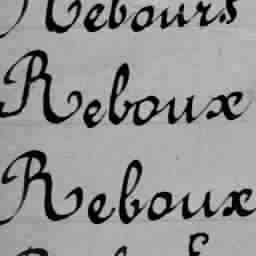 Rebours
Reboux
Reboux